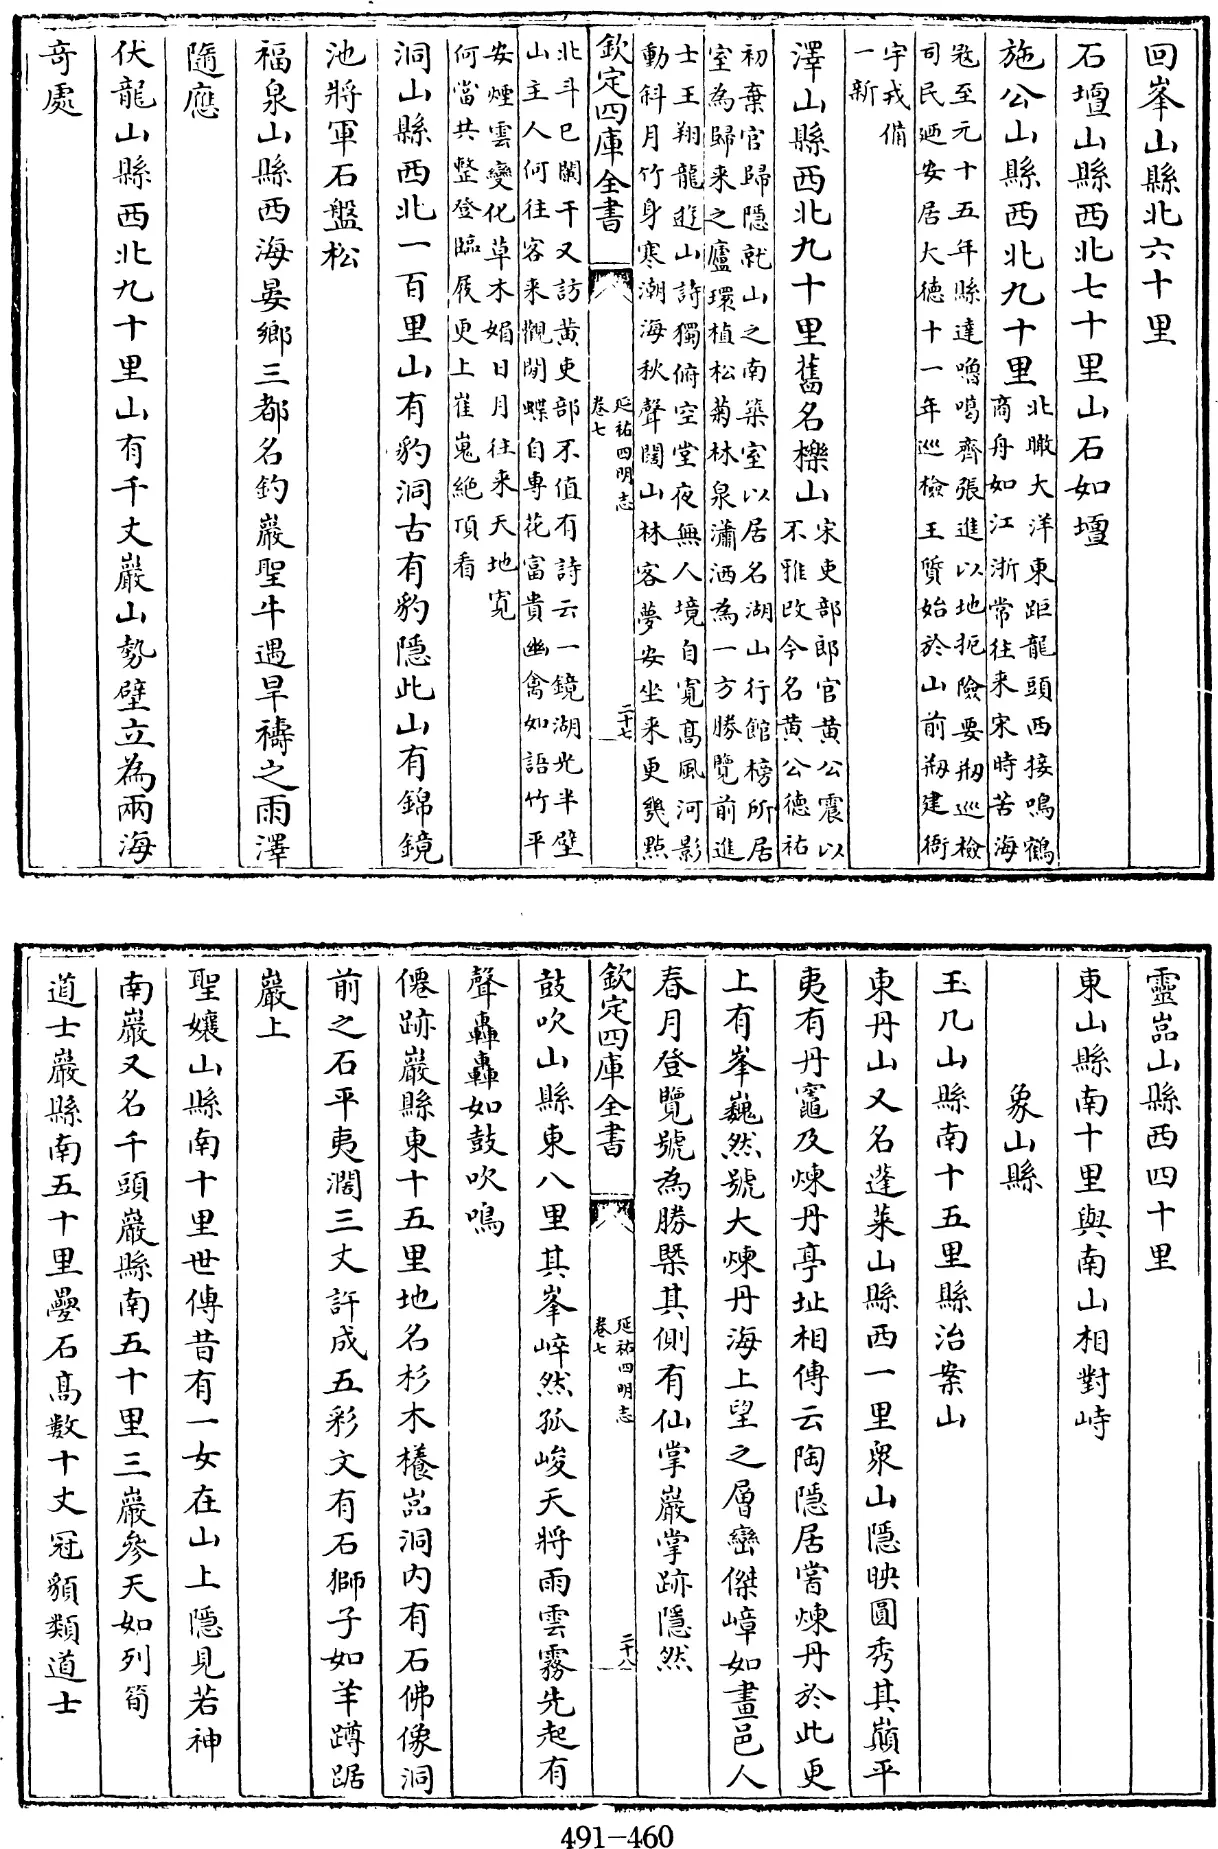 回峯山縣北六十里
石壇山縣西北七十里山石如壇
施公山縣西北九十里
北瞰大洋東距龍頭西接鳴鶴
商舟如江浙常往来宋時苦海
冦至元十五年縣達嚕噶齊張進以地扼險要剏巡檢
司民廼安居大德十一年巡檢王質始於山前剏建衙
宇戎備
一新
澤山縣西北九十里舊名櫟山
宋吏部郎官黄公震以
不雅改今名黄公德祐
初棄官歸隱就山之南築室以居名湖山行館榜所居
室為歸来之廬環植松菊林泉瀟洒為一方勝覽前進
士王翔龍遊山詩獨俯空堂夜無人境自寛髙風河影
動斜月竹身寒潮海秋聲闊山林客夢安坐来更㡬㸃
欽定四庫全書
延祐四明志
卷七
二十七
北斗已闌干又訪黄吏部不值有詩云一鏡湖光半壁
山主人何往客来觀閒蝶自專花富貴幽禽如語竹平
安煙雲變化草木媚日月往来天地寛
何當共整登臨屐更上崔嵬絶頂看
洞山縣西北一百里山有豹洞古有豹隱此山有錦鏡
池將軍石盤松
福泉山縣西海晏鄉三都名釣巖聖牛遇旱禱之雨澤
隨應
伏龍山縣西北九十里山有千丈巖山勢壁立為兩海
奇處
靈嵓山縣西四十里
東山縣南十里與南山相對峙
象山縣
玉几山縣南十五里縣治案山
東丹山又名蓬萊山縣西一里衆山隱映圓秀其巔平
夷有丹竈及煉丹亭址相傳云陶隱居嘗煉丹於此更
上有峯巍然號大煉丹海上望之層巒傑嶂如畫邑人
春月登覽號為勝槩其側有仙掌巖掌跡隱然
欽定四庫全書
延祐四明志
卷七
二十八
鼓吹山縣東八里其峯崪然孤峻天將雨雲霧先起有
聲轟轟如鼓吹鳴
僊跡巖縣東十五里地名杉木棬嵓洞内有石佛像洞
前之石平夷濶三丈許成五彩文有石獅子如羊蹲踞
巖上
聖孃山縣南十里世傳昔有一女在山上隱見若神
南巖又名千頭巖縣南五十里三巖參天如列筍
道士巖縣南五十里壘石髙數十丈冠額類道士
491-460